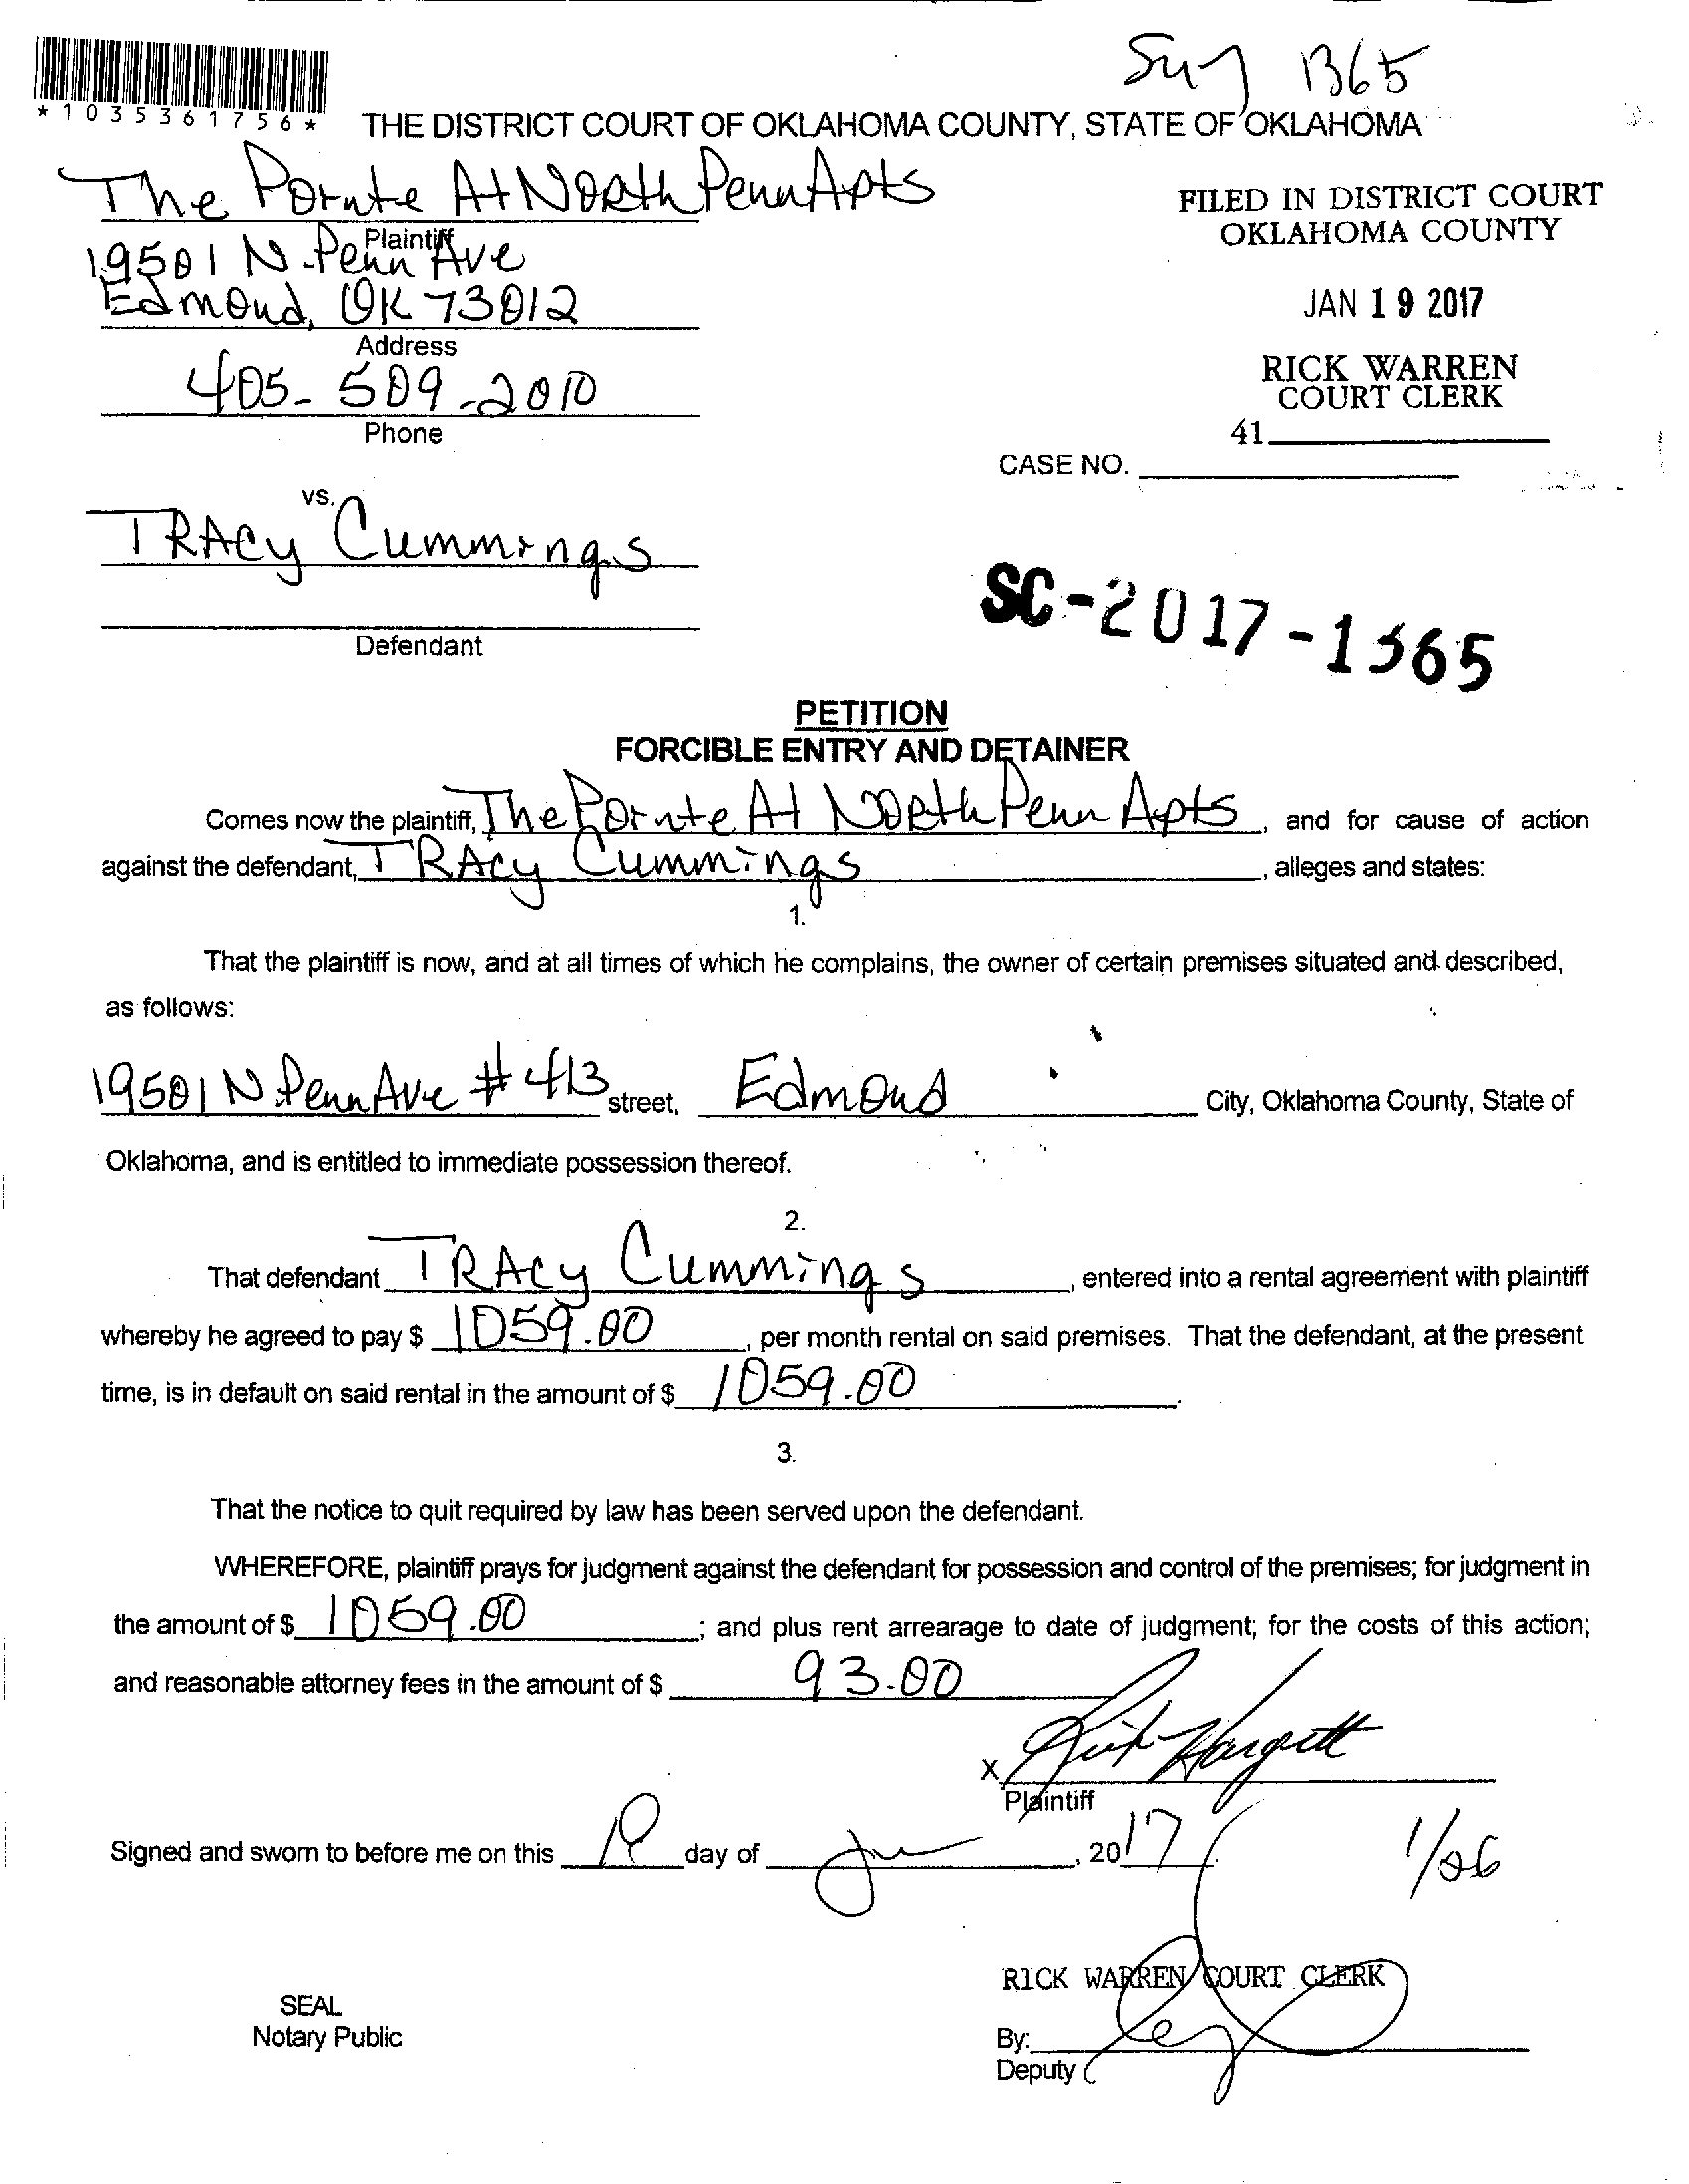 Sug 1365
*1035361756*
THE DISTRICT COURT OF OKLAHOMA COUNTY, STATE OF OKLAHOMA
The Pointe At North Penn Apts
Plaintiff
19501 N. Penn Ave
Edmond, OK 73012
Address
405-509-2010
Phone
FILED IN DISTRICT COURT
OKLAHOMA COUNTY
JAN 19 2017
RICK WARREN
COURT CLERK
41
CASE NO.
vs.
TRACY Cummings
Defendant
SC-2017-1365
PETITION
FORCIBLE ENTRY AND DETAINER
Comes now the plaintiff, The Pointe At North Penn Apts, and for cause of action
against the defendant, TRACY Cummings, alleges and states:
1.
That the plaintiff is now, and at all times of which he complains, the owner of certain premises situated and described,
as follows:
19501 N Penn Ave # 413 street, Edmond City, Oklahoma County, State of
Oklahoma, and is entitled to immediate possession thereof.
2.
That defendant TRACY Cummings, entered into a rental agreement with plaintiff
whereby he agreed to pay $ 1059.00, per month rental on said premises. That the defendant, at the present
time, is in default on said rental in the amount of $ 1059.00.
3.
That the notice to quit required by law has been served upon the defendant.
WHEREFORE, plaintiff prays for judgment against the defendant for possession and control of the premises; for judgment in
the amount of $ 1059.00; and plus rent arrearage to date of judgment; for the costs of this action;
and reasonable attorney fees in the amount of $ 93.00
X Rick Hargett
Plaintiff
Signed and sworn to before me on this 19 day of Jan, 2017
1/26
RICK WARREN COURT CLERK
SEAL
Notary Public
By:
Deputy